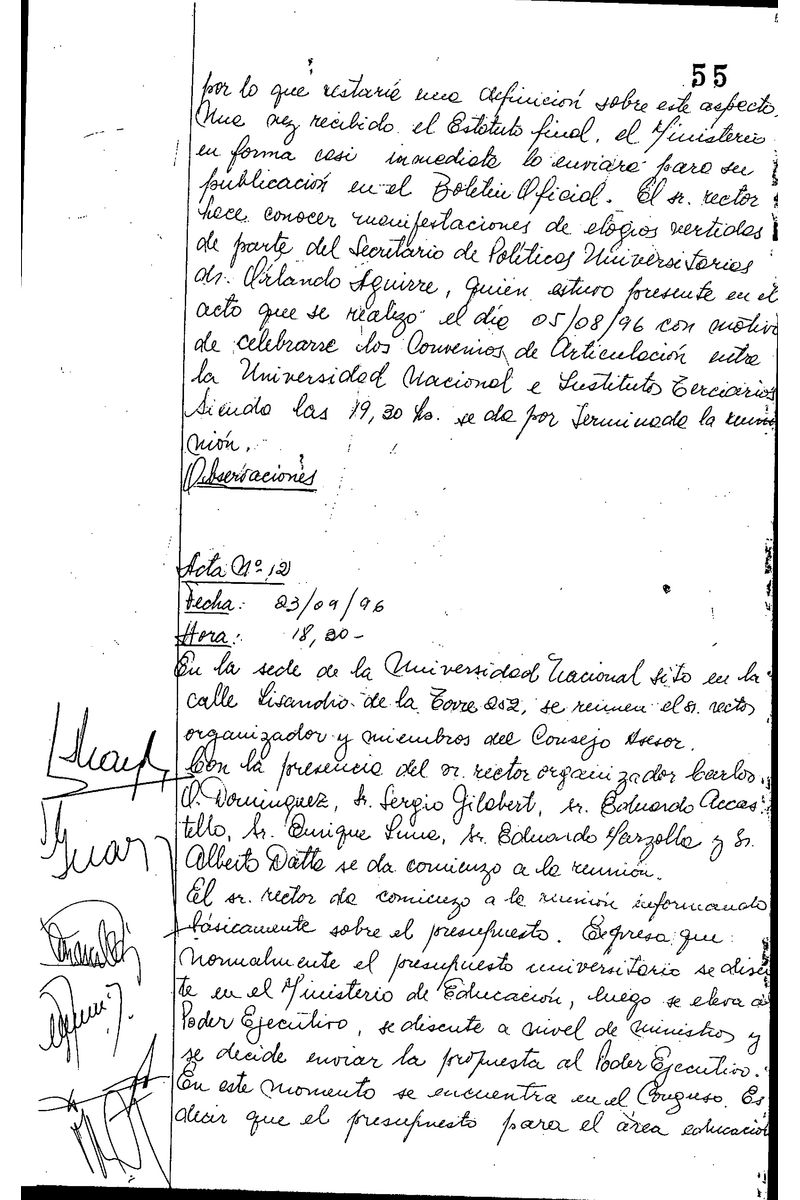 55
por lo que restaría una definición sobre este aspecto.
Una vez recibido el Estatuto final, el Ministerio
en forma casi inmediata lo enviará para su
publicación en el Boletín Oficial. El sr. rector
hace conocer manifestaciones de elogios vertidas
de parte del Secretario de Políticas Universitarias
dr. Orlando Aguirre, quien estuvo presente en el
acto que se realizó el día 05/08/96 con motivo
de celebrarse los Convenios de Articulación entre
la Universidad Nacional e Institutos Terciarios
Siendo las 19,30 hs. se da por terminada la reu
nión.
Observaciones
Acta Nº 12
Fecha: 23/09/96
Hora: 18,30-
En la sede de la Universidad Nacional sito en la
calle Lisandro de la Torre 252, se reunen el sr. rector
organizador y miembros del Consejo Asesor.
Con la presencia del sr. rector organizador Carlos
O. Domínguez, Sr. Sergio Gilabert, sr. Eduardo Accas
tello, Sr. Enrique Luna, Sr. Eduardo Marzolla y Sr.
Alberto Datta se da comienzo a la reunión.
El sr. rector da comienzo a la reunión informando
básicamente sobre el presupuesto. Expresa que
normalmente el presupuesto universitario se discu
te en el Ministerio de Educación, luego se eleva al
Poder Ejecutivo, se discute a nivel de ministros y
se decide enviar la propuesta al Poder Ejecutivo.
En este momento se encuentra en el Congreso. Es
decir que el presupuesto para el área educación